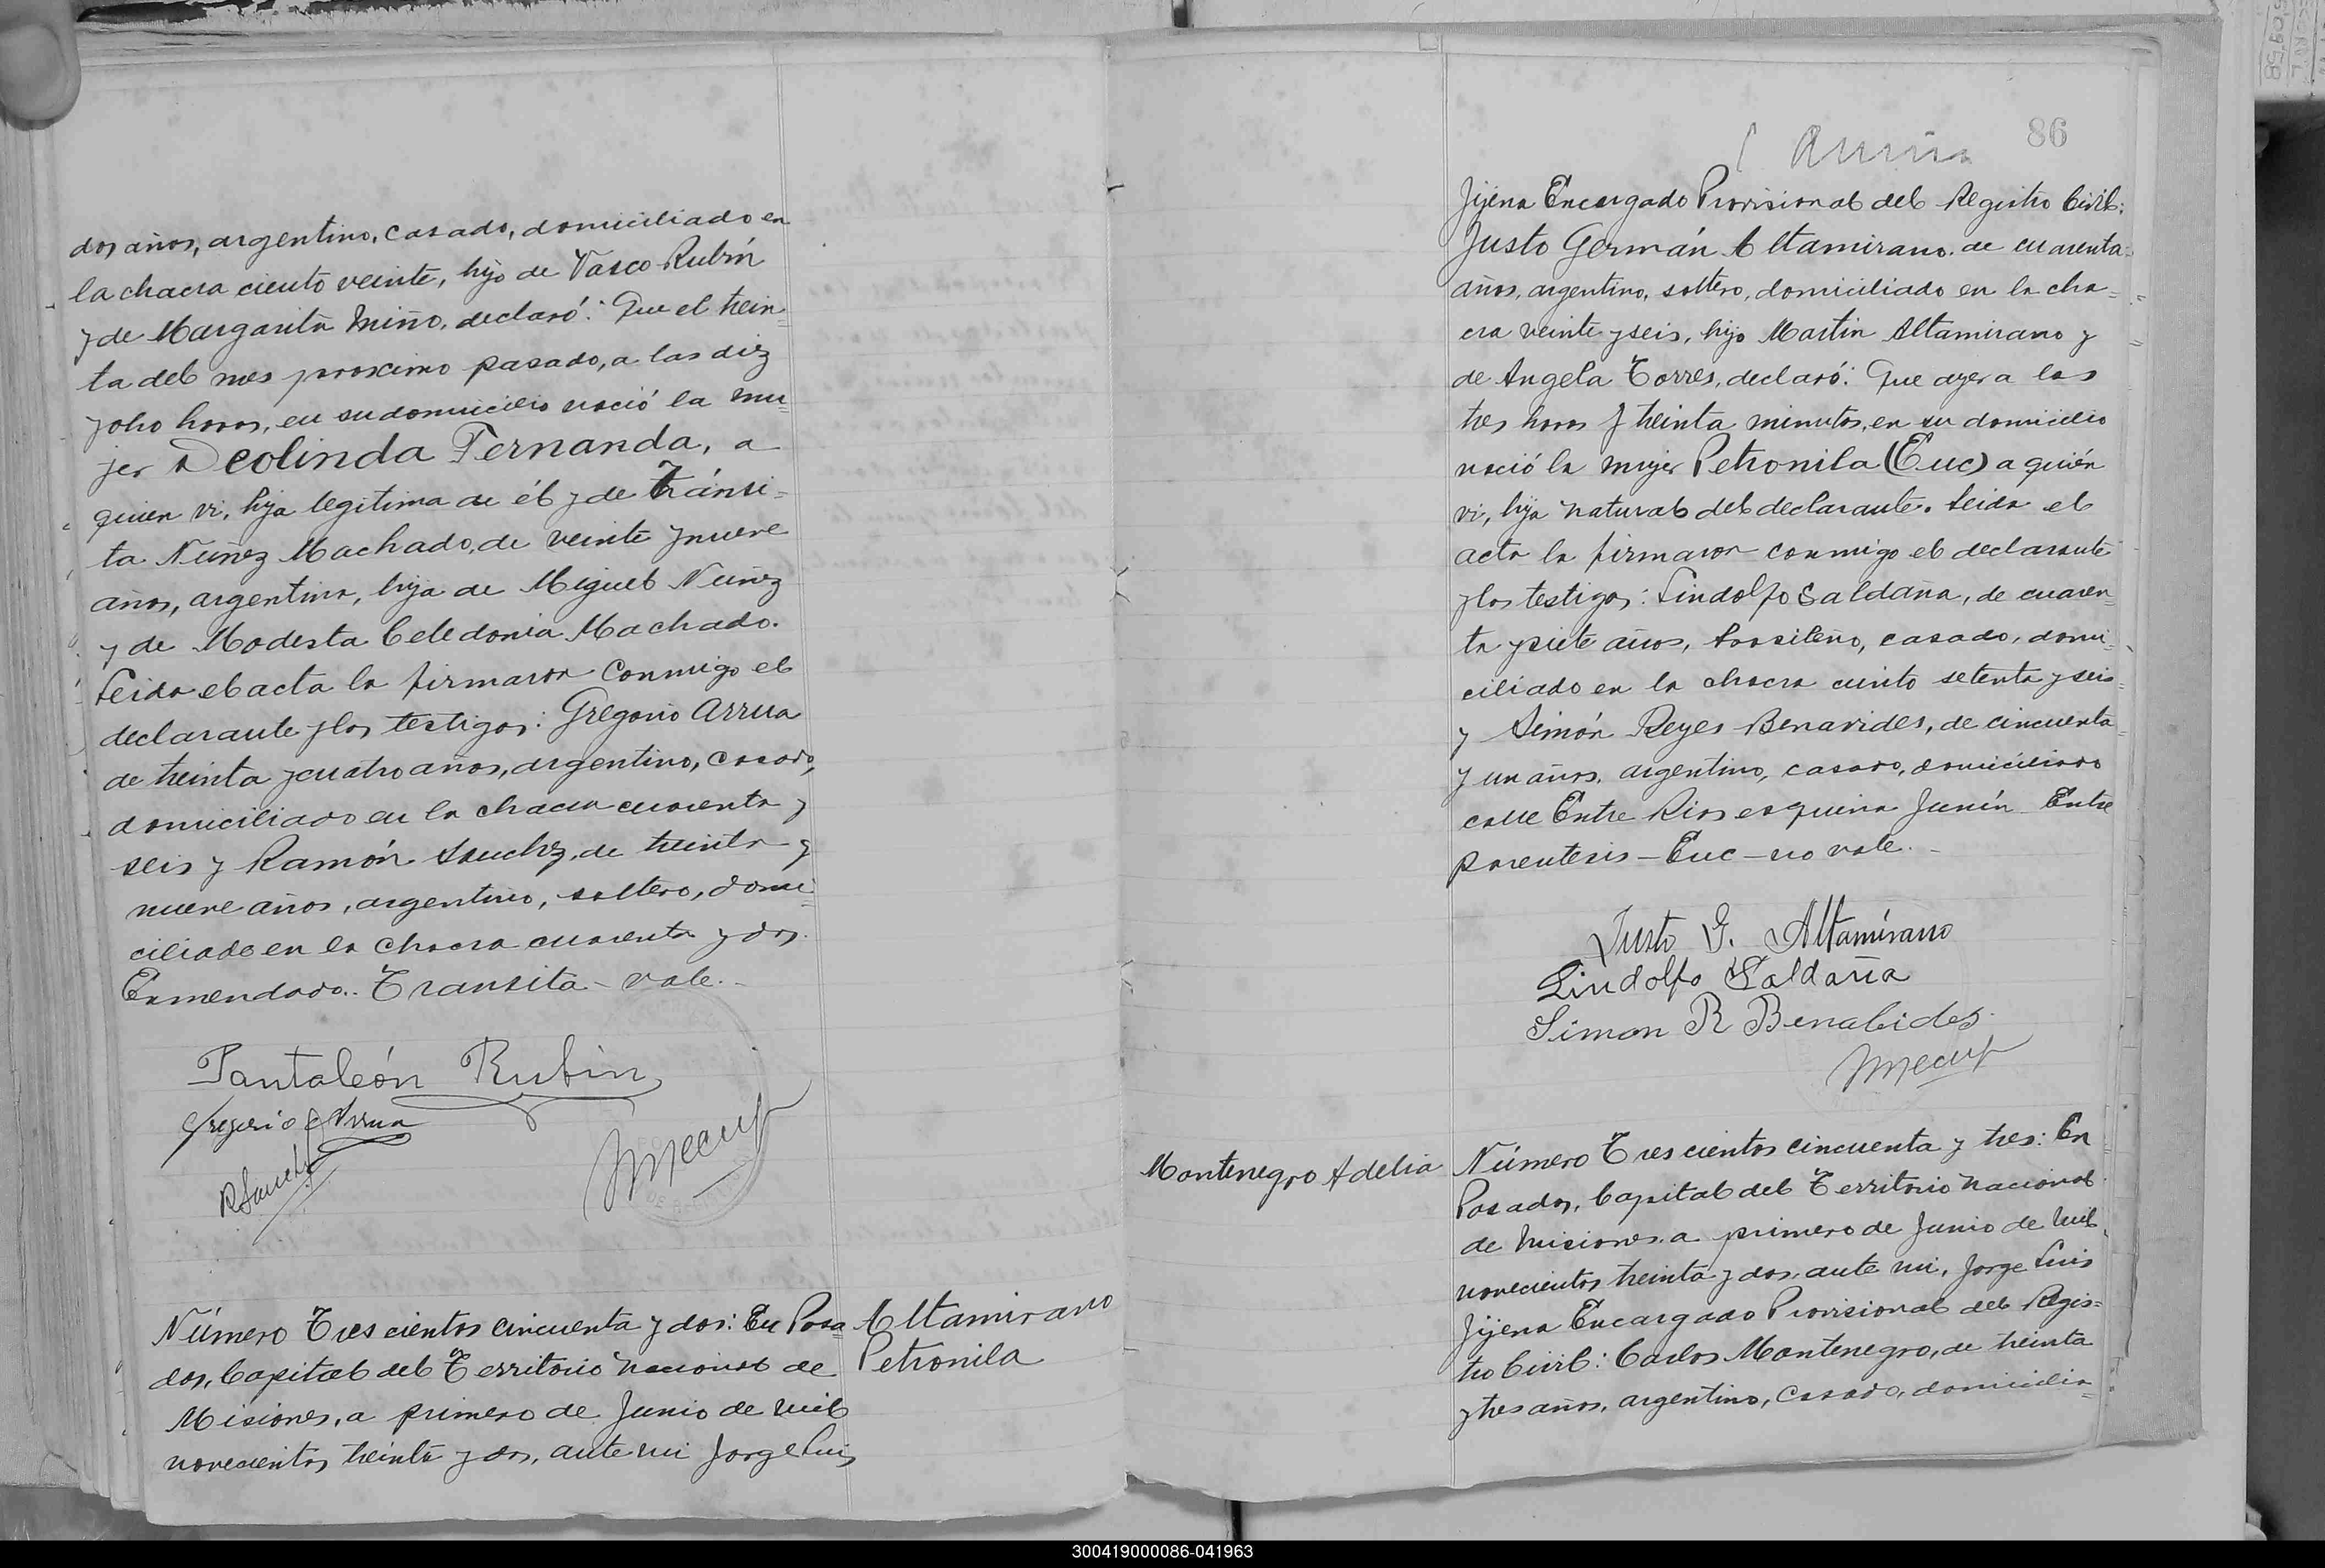 dos años, argentino, casado, domiciliado en
la chacra ciento veinte, hijo de Vasco Rubín
y de Margarita Miño, declaró: Que el trein=
ta del mes proximo pasado, a las diez
y ocho horas, en su domicilio nació la mu=
jer Deolinda Fernanda, a
quien vi, hija legitima de él y de Tránsi=
ta Nuñez Machado, de veinte y nueve
años, argentina, hija de Miguel Nuñez
y de Modesta Celedonia Machado.
Leida el acta la firmaron conmigo el
declarante y los testigos: Gregorio Arrua
de treinta y cuatro años, argentino, casado,
domiciliado en la chacra cuarenta y
seis y Ramón Sanchez, de treinta y
nueve años, argentino, soltero, domi=
ciliado en la chacra cuarenta y dos.
Enmendado.. Transita - vale.-
Pantaleón Rubin
Gregorio Arrua
R Sanchez
Número Trescientos cincuenta y dos: En Posa=
das, Capital del Territorio Nacional de
Misiones, a primero de Junio de mil
novecientos treinta y dos, ante mi Jorge Luis
Altamirano
Petronila
86
Jijena Encargado Provisional del Registro Civil:
Justo Germán Altamirano, de cuarenta
años, argentino, soltero, domiciliado en la cha=
cra veinte y seis, hijo Martin Altamirano y
de Angela Torres, declaró: Que ayer a las
tres horas y treinta minutos, en su domicilio
nació la mujer Petronila (Euc) a quién
vi, hija natural del declarante. Leida el
acta la firmaron conmigo el declarante
y los testigos: Lindolfo Saldaña, de cuaren=
ta y siete años, brasileño, casado, domi=
ciliado en la chacra ciento setenta y seis
y Simón Reyes Benavides, de cincuenta
y un años, argentino, casado, domiciliado
calle Entre Rios esquina Junín - Entre
parentesis - Euc - no vale.-
Justo G. Altamirano
Lindolfo Saldaña
Simon R Benabides
Montenegro Adelia
Número Trescientos cincuenta y tres: En
Posadas, Capital del Territorio Nacional
de Misiones, a primero de Junio de mil
novecientos treinta y dos, ante mi, Jorge Luis
Jijena Encargado Provisional del Regis=
tro Civil: Carlos Montenegro, de treinta
y tres años, argentino, casado, domicilia=
300419000086-041963